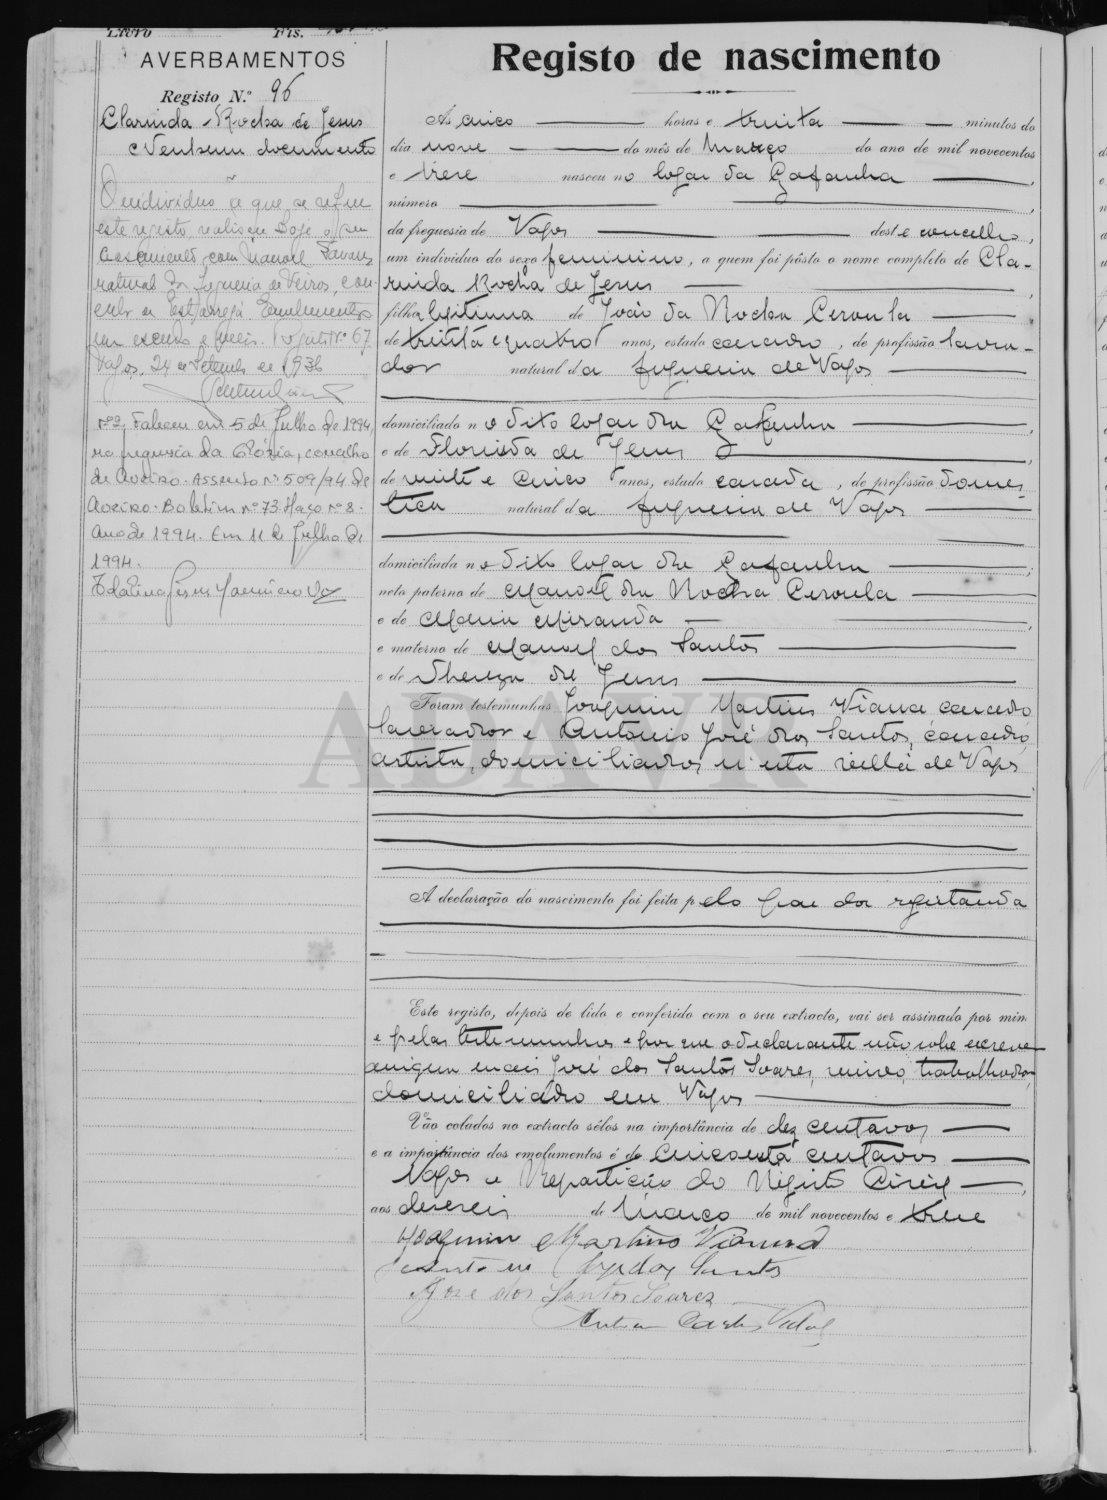 Livro Fls.
AVERBAMENTOS
Registo N.º 96
Clarinda Rocha de Jesus
Nenhum documento
O individuo a que se refere
este registo, realisou hoje o seu
casamento com Manoel Tavares
natural de Figueira de Veiros, con-
celho de Estarreja. Emolumentos
um escudo e Registo Nº 67
Vagos, 24 de Setembro de 1936
Nº 2, Faleceu em 5 de Julho de 1994,
na freguesia da Glória, concelho
de Aveiro. Assento nº 509/94 de
Aveiro. Boletim nº 73. Maço nº 8.
Ano de 1994. Em 11 de Julho de
1994.
Registo de nascimento
Ás cinco horas e trinta minutos do
dia nove do mês de Março do ano de mil novecentos
e treze nasceu no logar da Gafanha,
número
da freguesia de Vagos deste concelho,
um individuo do sexo feminino, a quem foi pôsto o nome completo de Cla-
rinda Rocha de Jesus
filha legitima de João da Rocha Ceroula
de trinta e quatro anos, estado casado, de profissão lavra-
dor natural da freguesia de Vagos
domiciliado no dito logar da Gafanha
e de Florinda de Jesus
de vinte e cinco anos, estado casada, de profissão domes-
tica natural da freguesia de Vagos
domiciliada no dito logar da Gafanha;
neta paterna de Manoel da Rocha Ceroula
e de Maria Miranda
e materna de Manoel dos Santos
e de Thereza de Jesus
Foram testemunhas Joaquim Martins Viana casado
lavrador e Antonio José dos Santos, casado,
artista, domiciliados n'esta villa de Vagos
A declaração do nascimento foi feita pelo pae da registanda
Este registo, depois de lido e conferido com o seu extracto, vai ser assinado por mim
e pelas testemunhas e por que o declarante não sabe escrever
assigna mais José dos Santos Soares, viuvo, trabalhador
domiciliado em Vagos
Vão colados no extracto sêlos na importância de dez centavos
e a importância dos emolumentos é de cincoenta centavos
Vagos e Repartição do Registo Civil,
aos dezeseis de Março de mil novecentos e treze
Joaquim Martins Vianna
José dos Santos Soares
Carlos Vidal
ADAVR